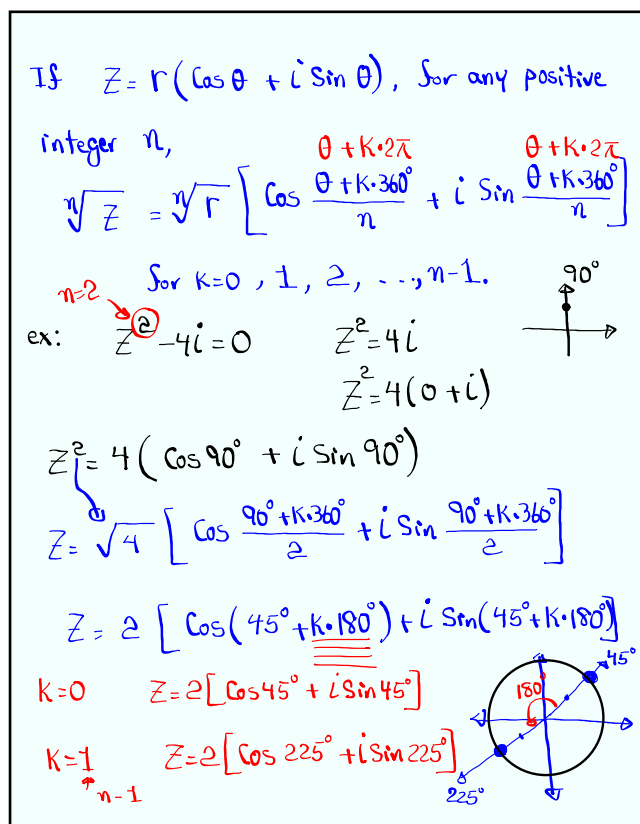 If Z = r(Cos θ + i Sin θ), for any positive
integer n,
θ + K·2π θ + K·2π
ⁿ√Z = ⁿ√r [Cos (θ + K·360°)/n + i Sin (θ + K·360°)/n]
for K=0, 1, 2, ..., n-1.
n=2
90°
ex: Z² - 4i = 0 Z² = 4i
Z² = 4(0 + i)
Z² = 4(Cos 90° + i Sin 90°)
Z = √4 [Cos (90° + K·360°)/2 + i Sin (90° + K·360°)/2]
Z = 2 [Cos(45° + K·180°) + i Sin(45° + K·180°)]
K=0 Z = 2[Cos 45° + i Sin 45°]
45°
180
K=1 Z = 2[Cos 225° + i Sin 225°]
n-1
225°